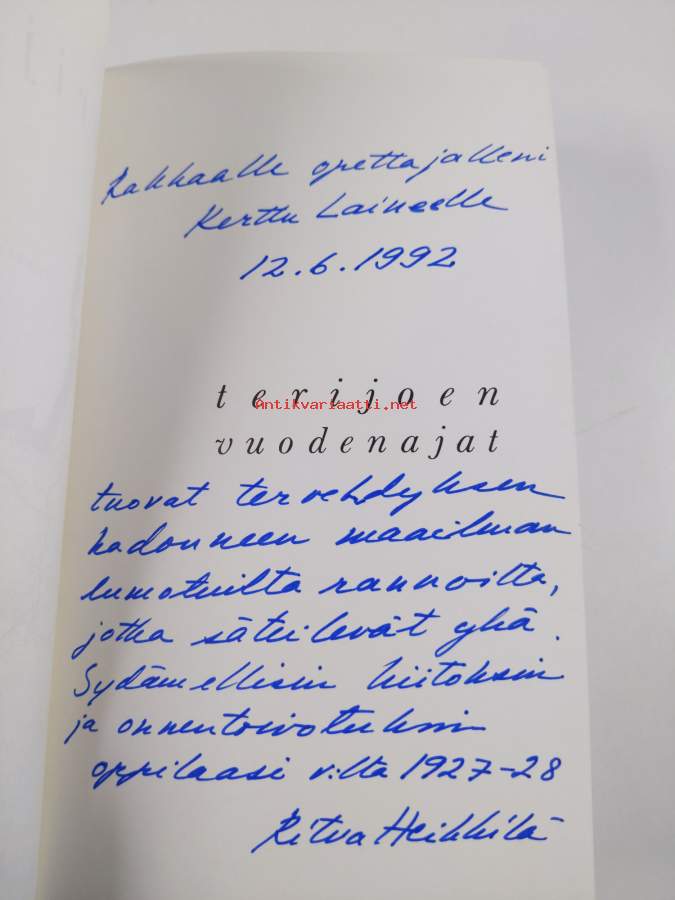 Rakkaalle opettajalleni
Kerttu Laineelle
12.6.1992
terijoen
Antikvariaatti.net
vuodenajat
tuovat tervehdyksen
kadonneen maailman
lumotuilta rannoilta,
jotka säteilevät yhä.
Sydämellisin kiitoksin
ja onnentoivotuksin
oppilaasi v:lta 1927-28
Ritva Heikkilä